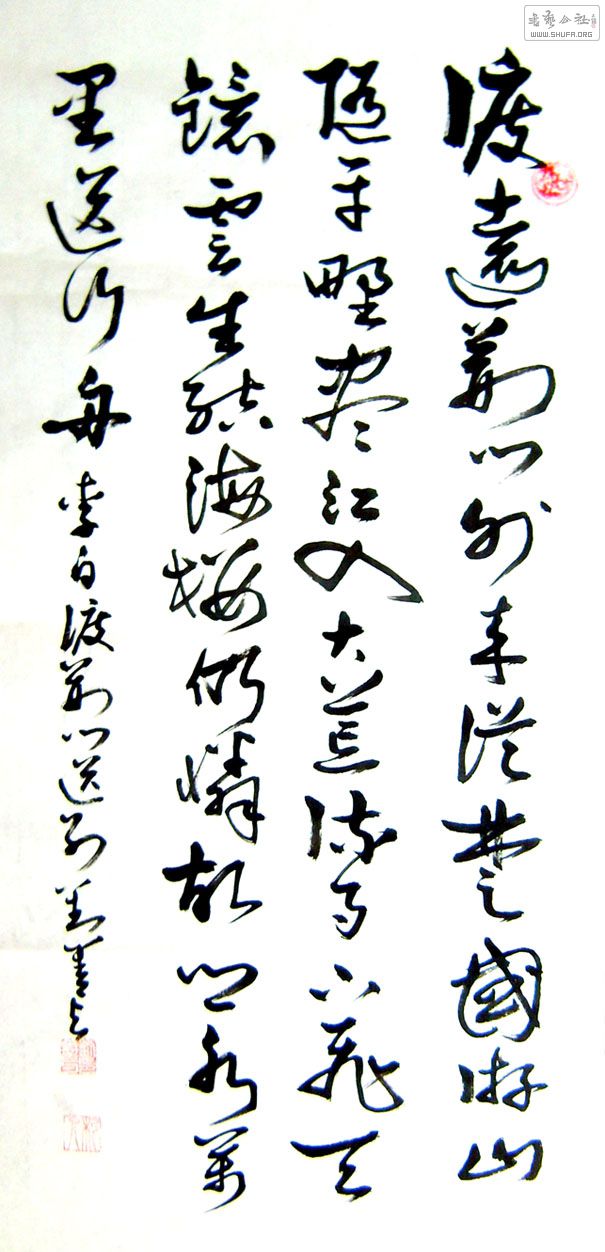 渡遠荊門外来從楚國游山
隨平野盡江入大荒流月下飛天
鏡雲生結海樓仍憐故鄉水萬
里送行舟 李白渡荊門送別
書藝公社
WWW.SHUFA.ORG